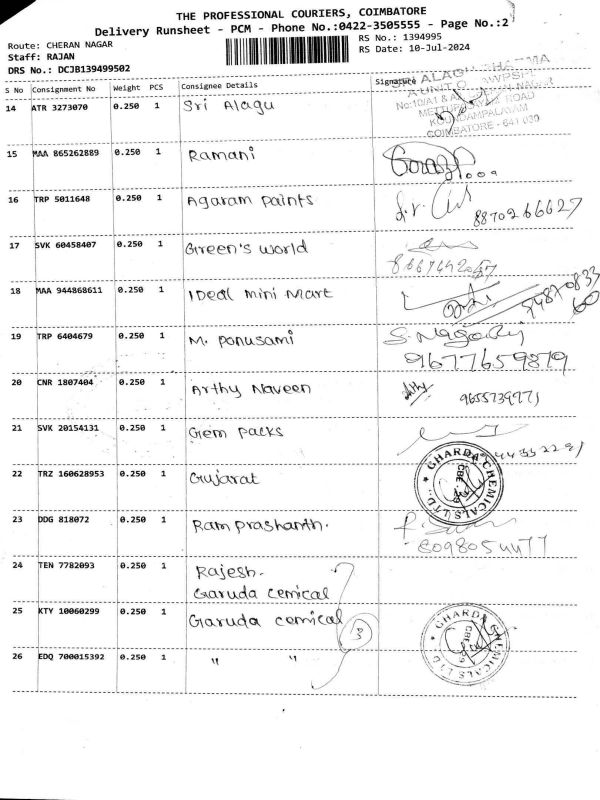 THE PROFESSIONAL COURIERS, COIMBATORE
Delivery Runsheet - PCM - Phone No.:0422-3505555 - Page No.:2
Route: CHERAN NAGAR RS No.: 1394995
Staff: RAJAN RS Date: 10-Jul-2024
DRS No.: DCJB139499502
S No Consignment No Weight PCS Consignee Details Signature
14 ATR 3273070 0.250 1 Sri Alagu
METTUPALAYAM ROAD
COIMBATORE - 641 030
15 MAA 865262889 0.250 1 Ramani
16 TRP 5011648 0.250 1 Agaram paints 8870266627
17 SVK 60458407 0.250 1 Green's world
18 MAA 944868611 0.250 1 IDeal mini Mart
19 TRP 6404679 0.250 1 M. Ponusami 9677659879
20 CNR 1807404 0.250 1 Arthy Naveen 9655739971
21 SVK 20154131 0.250 1 Gem Packs
22 TRZ 160628953 0.250 1 Gujarat GHARDA CHEMICALS LTD.
23 DDG 818072 0.250 1 Ram prashanth.
24 TEN 7782093 0.250 1 Rajesh.
Garuda cemical
25 KTY 10060299 0.250 1 Garuda cemical 3 GHARDA CHEMICALS LTD.
26 EDQ 700015392 0.250 1 " "